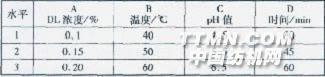 水平 A B C D
DL浓度/% 温度/℃ pH值 时间/min
1 0.1 40
2 0.15 50 45
3 0.20 60 6.5 60
TTMN.COM
中国纺机网